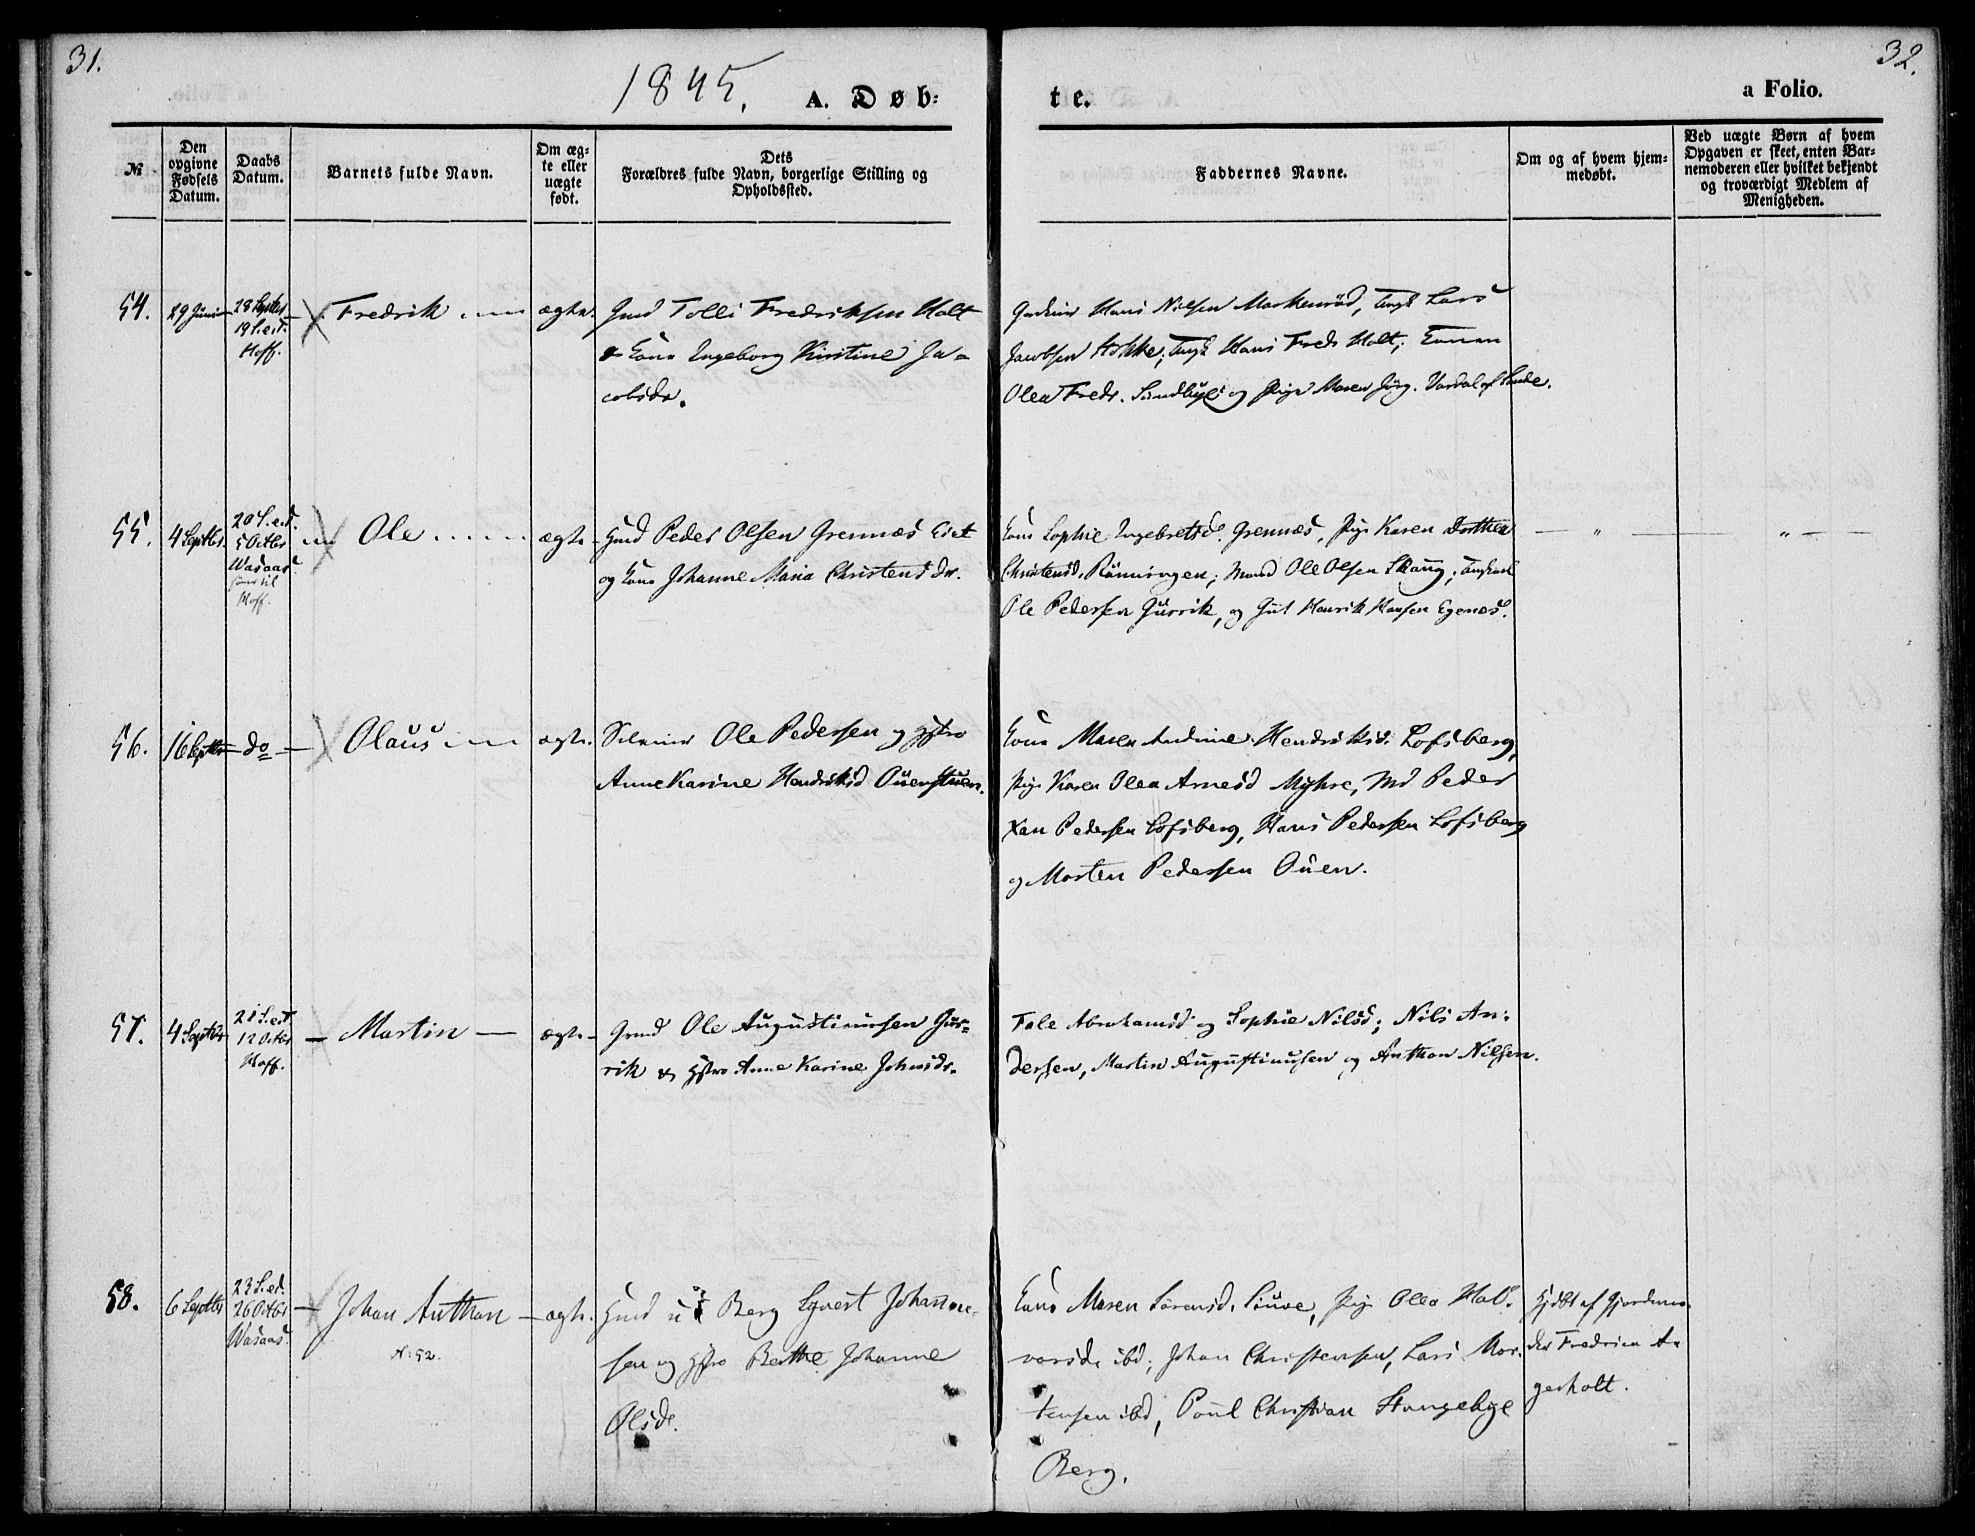 31.
32.
1845. A. Døb=
te.
a Folio.
№
Den
opgivne
Fødsels
Datum.
Daabs
Datum.
Barnets fulde Navn.
Om æg=
te eller
uægte
født.
Dets
Forældres fulde Navn, borgerlige Stilling og
Opholdssted.
Faddernes Navne.
Om og af hvem hjem=
medøbt.
Ved uægte Børn af hvem
Opgaven er skeet, enten Bar=
nemoderen eller hvilket bekjendt
og troværdigt Medlem af
Menigheden.
54.
29 Juni
28 Septbr
19 S. e. T.
Hoff.
Fredrik
ægte.
Gmd Tolli Fredriksen Holt
& Kone Ingeborg Kirstine Ja=
cobsdr.
Hans Nilsen Markerud, Ungk Lars
Jacobsen Ungk Hans Fredr Holt; Konen
Olea Fredr. Sundbye og Pige Maren Jörg. af Sande.
55.
4 Septbr
20 S. e. T.
5 Octbr
Wasaas.
til
Hoff.
Ole
ægte
Hmd Peder Olsen Grennæs Eiet
og Kone Johanne Maria Christensdr.
Kone Sophie Ingebretsd. Grennæs, Pige Karen Dorthea
Christensd. Rönningen; Mand Ole Olsen Skaug; Ungkarl
Ole Pedersen Gurrik, og Gut Henrik Hansen Egenes.
— " —
" —
56.
16 Septbr
do
Olaus
ægte.
Ole Pedersen og Hstro
Anne Karine Hendriksd Ouenstuen.
Kone Maren Andrine Hendriksd. Lofsberg,
Pige Karen Olea Arnesd Myhre, Md Peder
Pedersen Lofsberg, Hans Pedersen Lofsberg
og Morten Pedersen Ouen.
57.
4 Septbr
21 S. e. T.
12 Octbr
Hoff.
Martin
ægte
Grmd Ole Augustinussen Gur=
rik & Hstro Anne Karine Johnsdr.
Fale Abrahamsd og Sophie Nilsd; Nils An=
dersen, Martin Augustinusen og Anthon Nilsen.
58.
6 Septbr
23 S. e. T.
26 Octbr
Wasaas.
Johan Anthon
N: 52.
ægte.
Hmd u/ Berg Syvert Johanne=
sen og Hstro Berthe Johanne
Olsdr.
Kone Maren Sörensd. Siuve, Pige Olea Hal=
vorsd. ibd; Johan Christensen, Lars Mor=
tensen ibd, Poul Christian Stangebye
Berg.
Hjdbt af Gjordemo=
der Fredrica A=
gerholt.